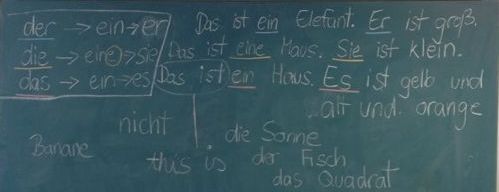 der → ein → er Das ist ein Elefant. Er ist groß.
die → eine → sie Das ist eine Maus. Sie ist klein.
das → ein → es Das ist ein Haus. Es ist gelb und
alt und orange
nicht die Sonne
Banane this is der Fisch
das Quadrat